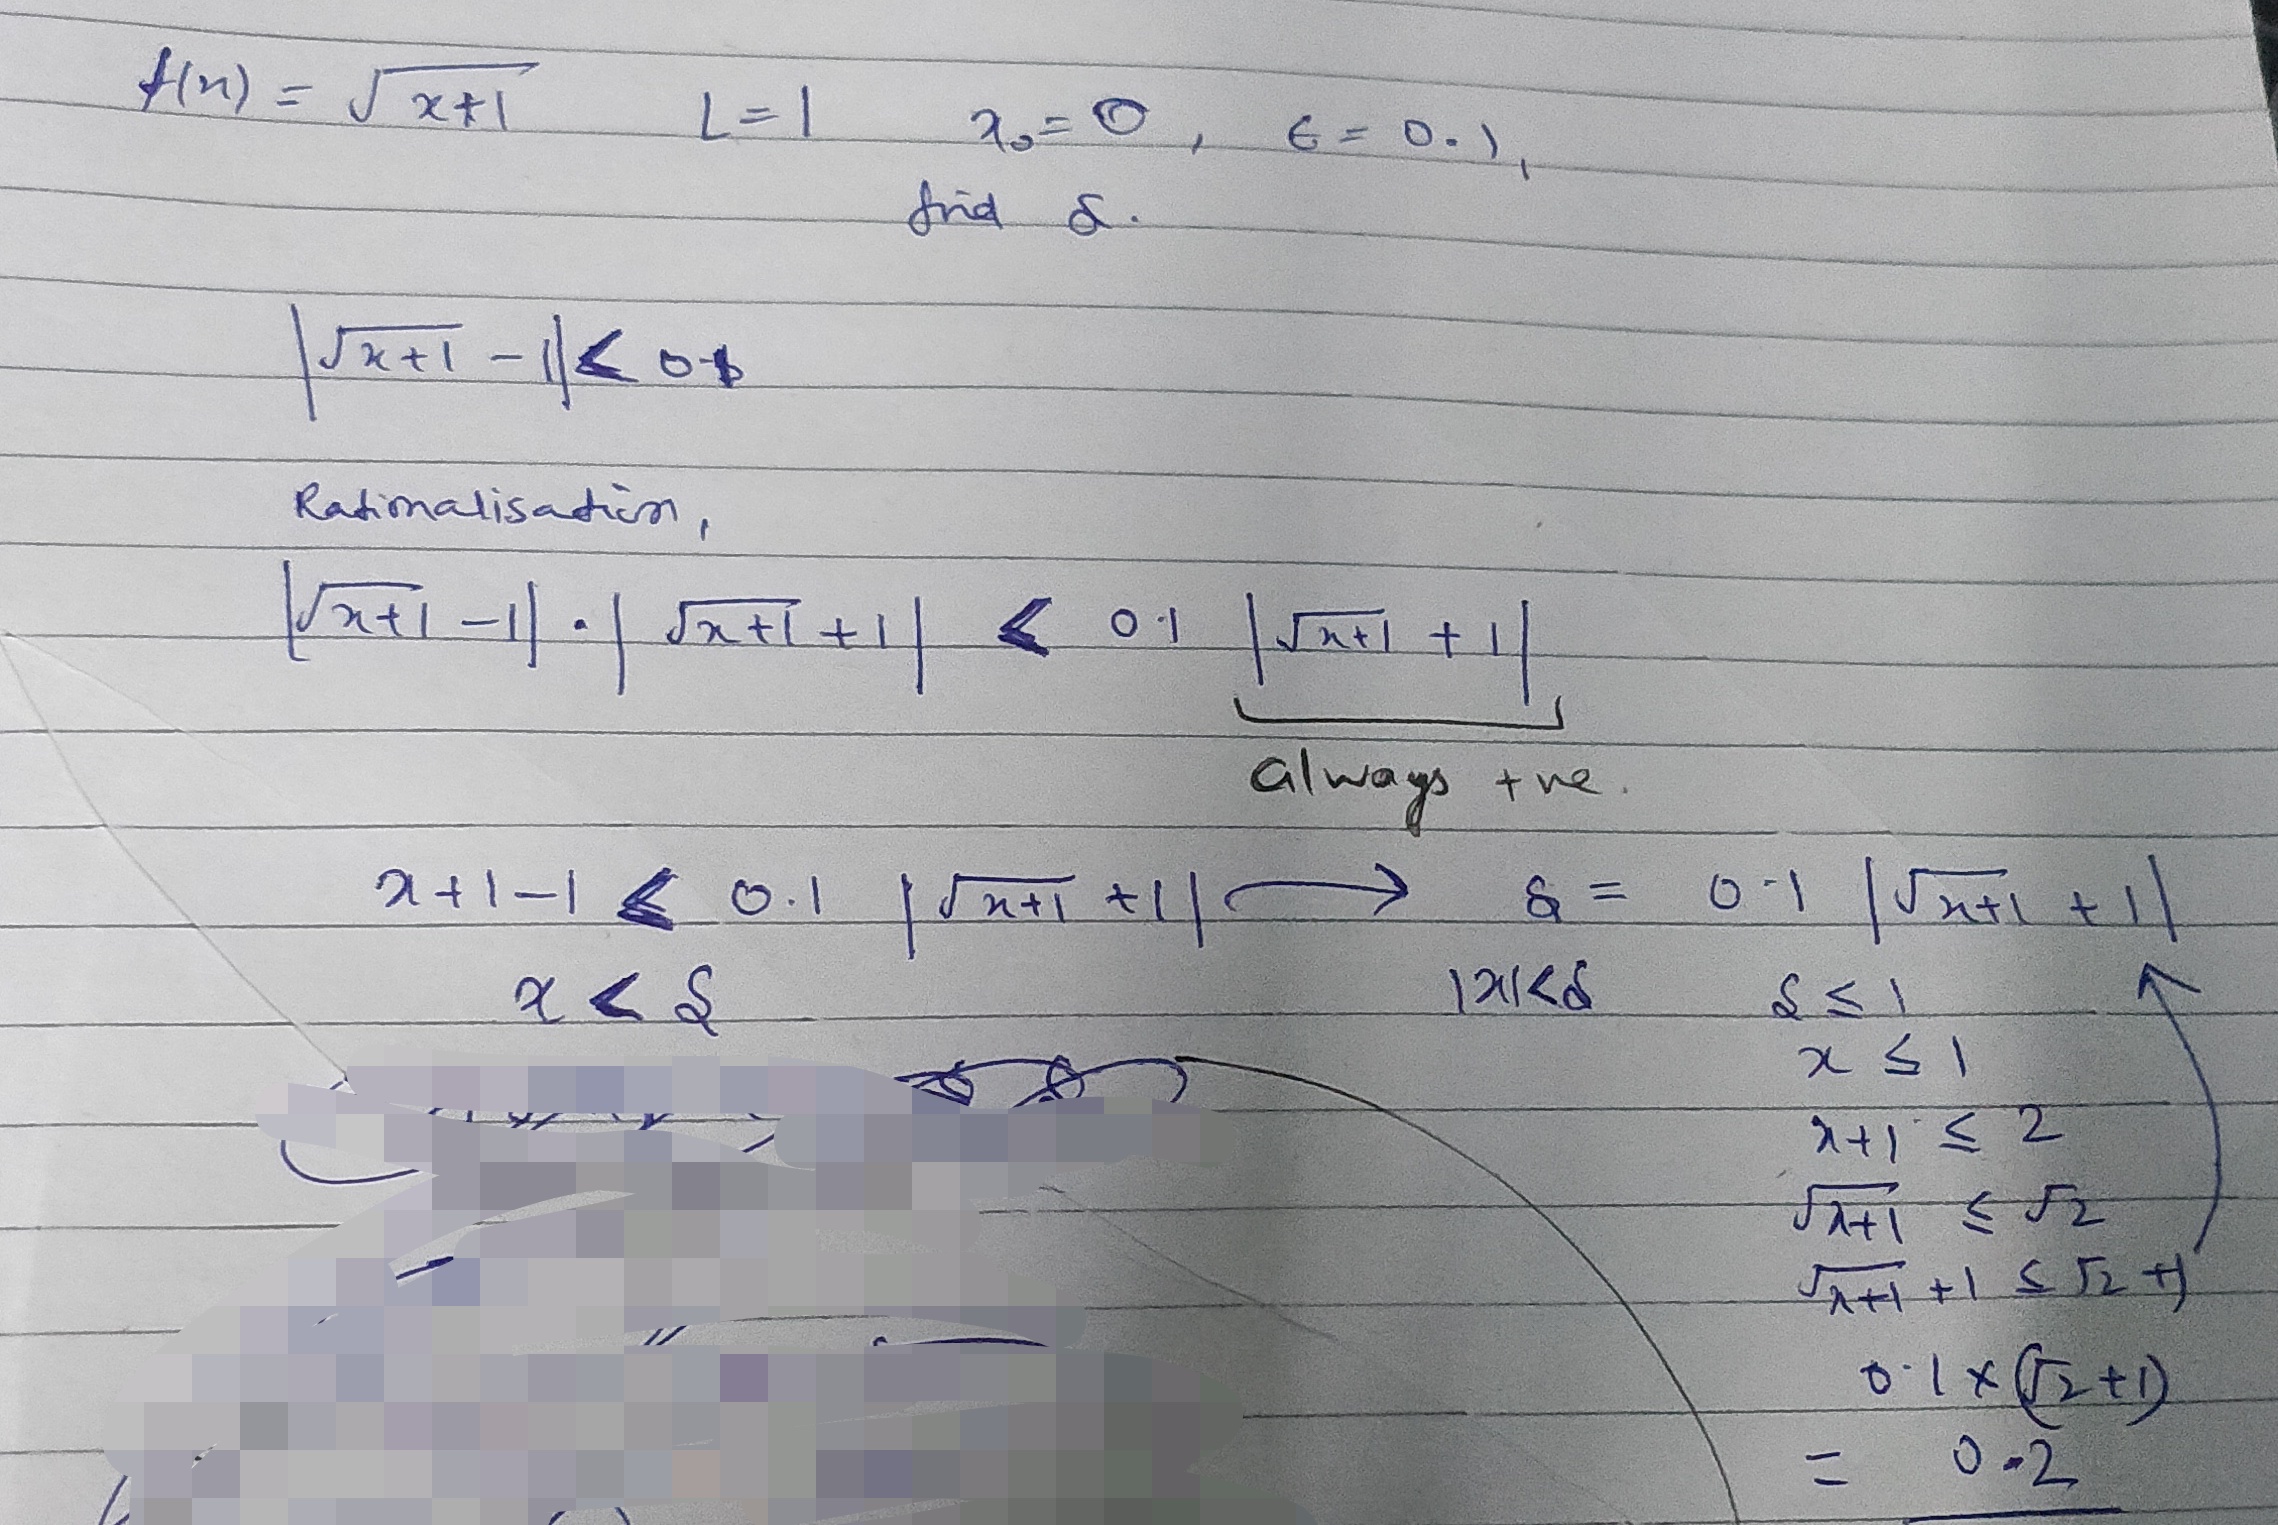 f(x) = √(x+1)   L=1   x₀=0, ϵ = 0.1,
find δ.
|√(x+1) - 1| < 0.1
Rationalisation,
|√(x+1) - 1| · |√(x+1) + 1| < 0.1 |√(x+1) + 1|
always +ve.
x+1-1 < 0.1 |√(x+1) + 1| → δ = 0.1 |√(x+1) + 1|
x < δ   |x|<δ   δ ≤ 1
x ≤ 1
x+1 ≤ 2
√(x+1) ≤ √2
√(x+1) + 1 ≤ √2 + 1
0.1 × (√2+1)
= 0.2